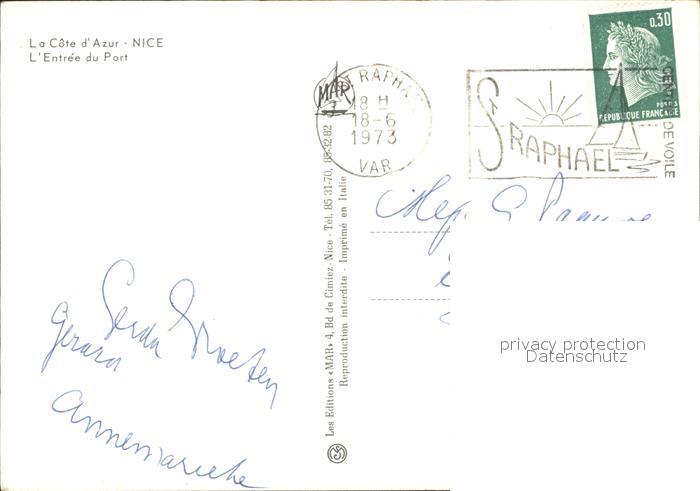 La Côte d'Azur - NICE
L'Entrée du Port
ST RAPHAEL
18 H
18-6
1973
VAR
MAR
ST RAPHAEL
DE VOILE
0,30
POSTES
REPUBLIQUE FRANÇAISE
Les Editions «MAR» 4, Bd de Cimiez - Nice - Tél. 85-31-70, 85-32 82
Reproduction interdite - Imprimé en Italie
Gerard
Annemarieke
privacy protection
Datenschutz